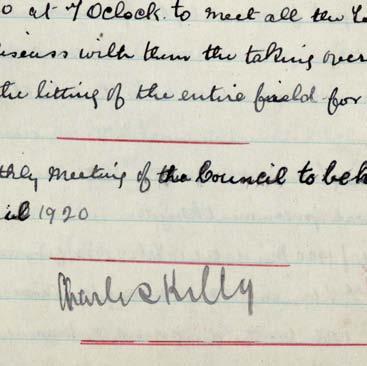 o at 7 OClock. to meet all the
iscuss with them the taking over
the litting of the entire field for
thly Meeting of the Council to be h
il 1920
Charles Kelly